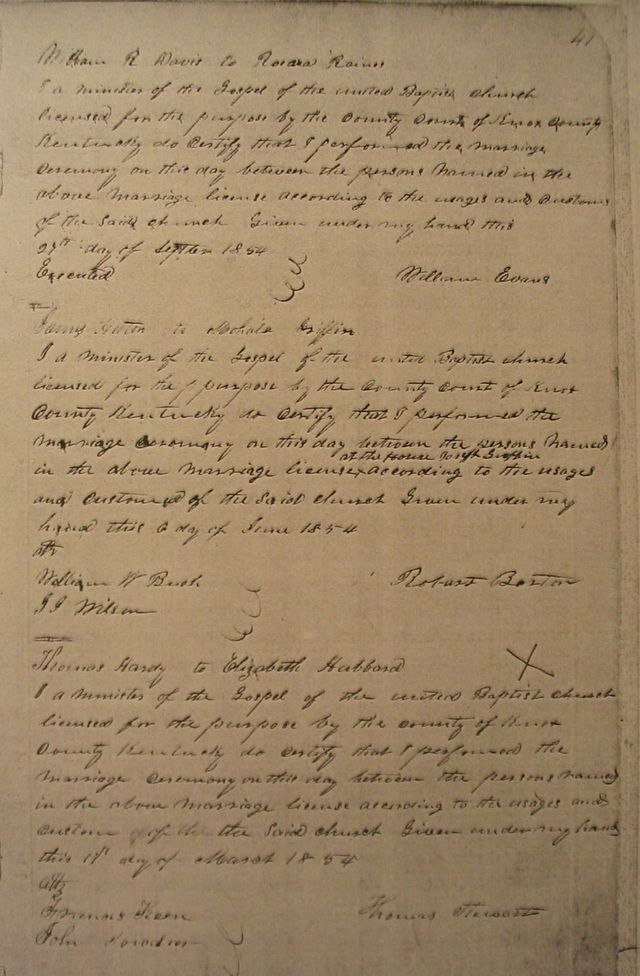 41
William R Davis to Rosara Rains
I a minister of the Gospel of the united Baptist church
licensed for the purpose by the County Court of Knox County
Kentucky do certify that I performed the marriage
ceremony on this day between the persons named in the
above marriage license according to the usages and customs
of the said church Given under my hand this
day of Septem 1854
Executed William Evans
James to Mahala Griffin
I a minister of the Gospel of the united Baptist church
licensed for the purpose by the County Court of Knox
County Kentucky do certify that I performed the
marriage ceremony on this day between the persons named
at the house Joseph Griffin
in the above marriage license according to the usages
and customed of the said church Given under my
hand this 6 day of June 1854
atts
William W Bush Robert Barton
J J Wilson
Thomas Hardy to Elizabeth Hubbard X
I a minister of the Gospel of the united Baptist church
licensed for the purpose by the county of Knox
County Kentucky do certify that I performed the
marriage ceremony on this day between the persons named
in the above marriage license according to the usages and
custom of the said church Given under my hand
this day of March 1854
atts
Thomas Stewart
John